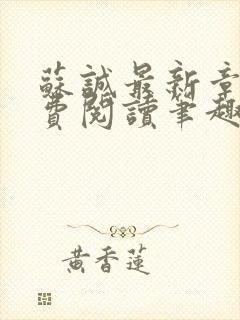 蘇誠最新章
費閱讀筆趣
黃香蓮